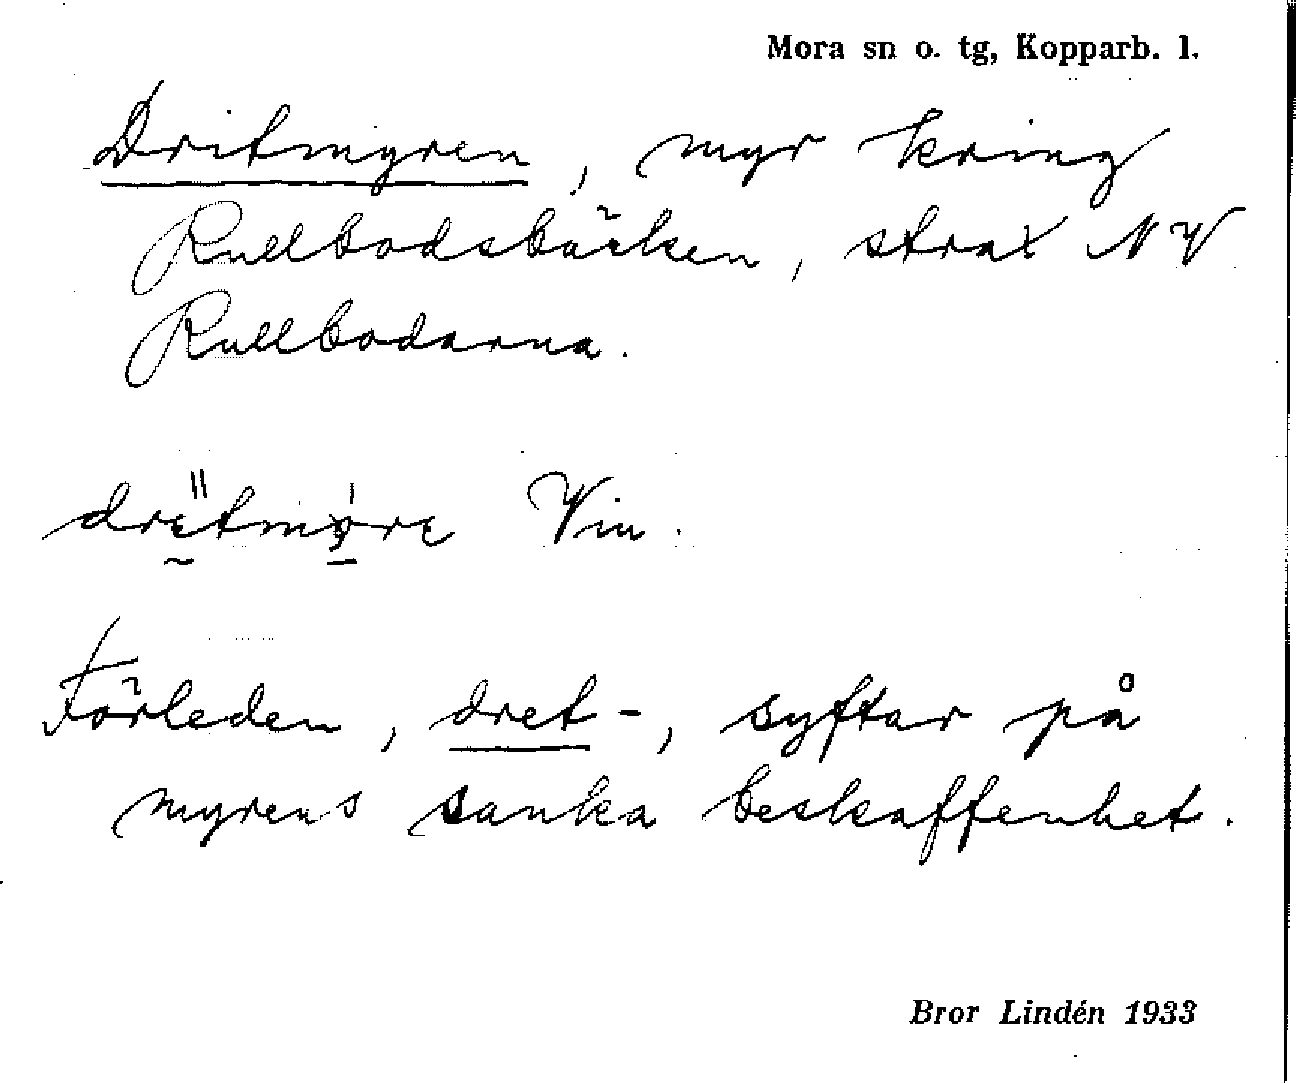 Mora sn o. tg, Kopparb. l.
Dritmyren, myr kring
Rullbodsbäcken, strax NV
Rullbodarna.
Vin.
Förleden, dret-, syftar på
myrens sanka beskaffenhet.
Bror Lindén 1933